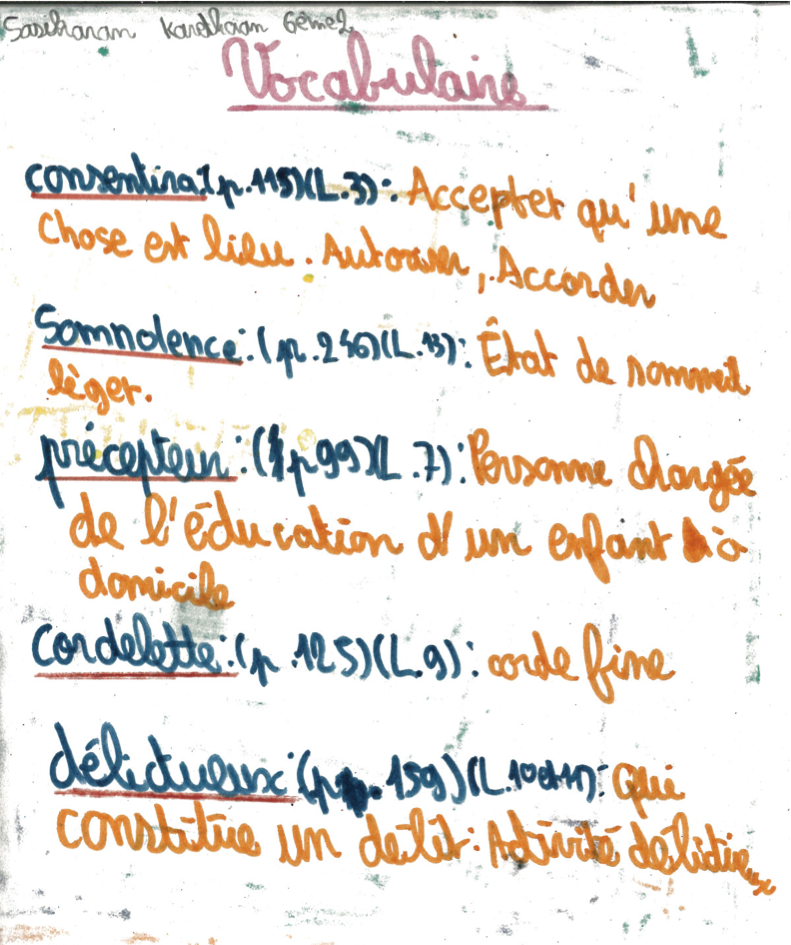 Sasikaran Karthaan 6ème2
Vocabulaire
consentira: (p.115)(L.3): Accepter qu'une
chose est lieu. Autoriser, Accorder
Somnolence: (p.246)(L.13): État de sommeil
lèger.
précepteur: (p99)(L.7): Personne chargée
de l'éducation d'un enfant à
domicile
cordelette: (p.125)(L.9): corde fine
délictueux: (p.159)(L.10et11): Qui
constitue un délit: Activité délictueux